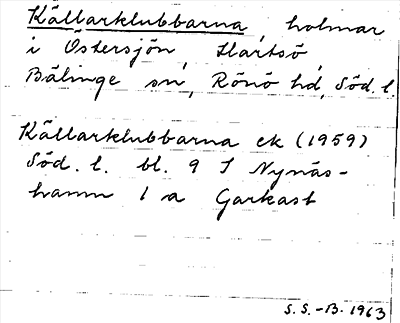 Källarklubbarna, holmar
i Östersjön, Hartsö,
Bälinge sn, Rönö hd, Söd. l.
Källarklubbarna ek (1959)
Söd. l. bl. 9 I Nynäs-
hamn 1 a Garkast
S.S.-B. 1963